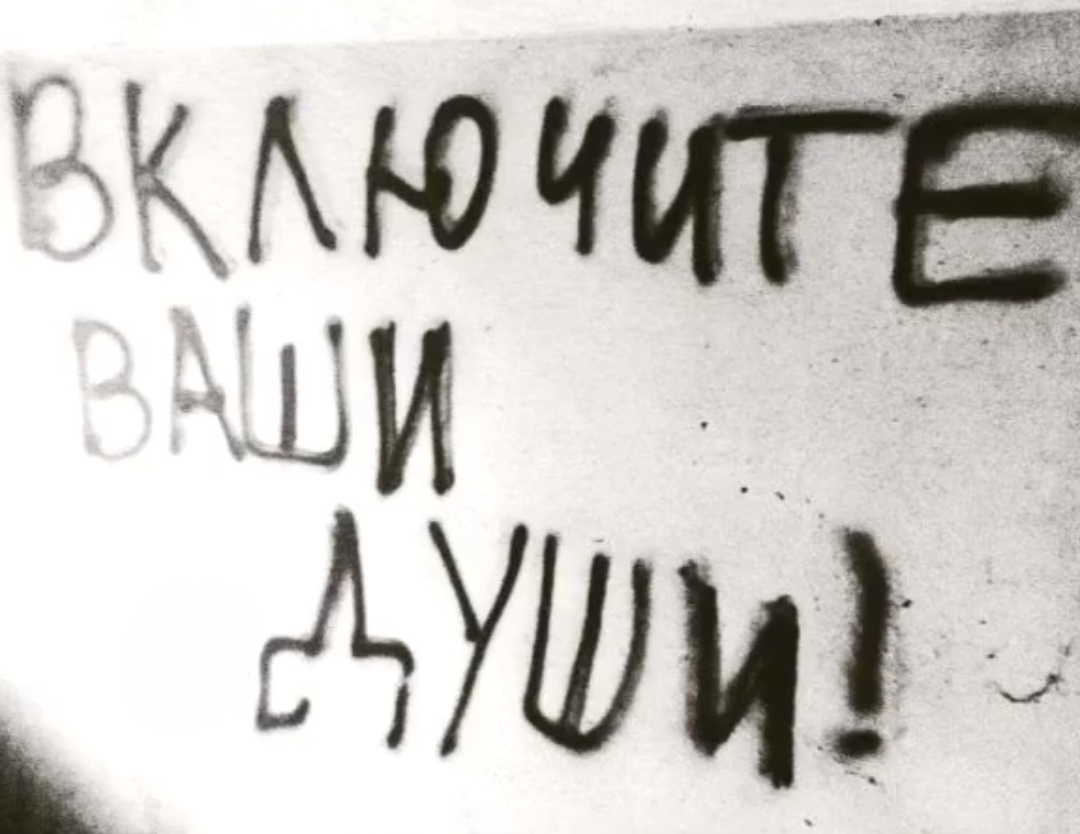 ВКЛЮЧИТЕ
ВАШИ
ДУШИ!